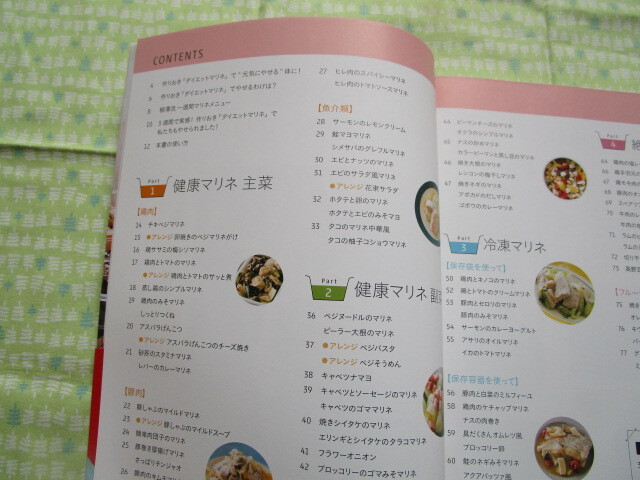 CONTENTS
4 作りおき「ダイエットマリネ」で“元気にやせる”体に!
6 作りおき「ダイエットマリネ」でやせるわけは?
8 柳澤流一週間マリネメニュー
10 3週間で実感!作りおき「ダイエットマリネ」で
私たちもやせられました!
12 本書の使い方
Part 1 健康マリネ 主菜
【鶏肉】
14 チキベジマリネ
15 ●アレンジ 卵焼きのベジマリネがけ
16 鶏ササミの梅シソマリネ
17 鶏肉とトマトのマリネ
●アレンジ 鶏肉とトマトのサッと煮
18 蒸し鶏のシンプルマリネ
19 鶏肉のみそマリネ
しっとりつくね
20 アスパラげんこつ
●アレンジ アスパラげんこつのチーズ焼き
21 砂肝のスタミナマリネ
レバーのカレーマリネ
【豚肉】
22 豚しゃぶのマイルドマリネ
23 ●アレンジ 豚しゃぶのマイルドスープ
24 簡単肉団子のマリネ
25 豚巻き厚揚げマリネ
さっぱりチンジャオ
26 豚肉のキムチマリネ
27 ヒレ肉のスパイシーマリネ
ヒレ肉のトマトソースマリネ
【魚介類】
28 サーモンのレモンクリーム
29 鮭マヨマリネ
シメサバのグレフルマリネ
30 エビとナッツのマリネ
31 エビのサラダ風マリネ
●アレンジ 花束サラダ
32 ホタテと卵のマリネ
ホタテとエビのみそマヨ
33 タコのマリネ中華風
タコの柚子コショウマリネ
Part 2 健康マリネ 副菜
36 ベジヌードルのマリネ
ピーラー大根のマリネ
37 ●アレンジ ベジパスタ
●アレンジ ベジそうめん
38 キャベツナマヨ
39 キャベツとソーセージのマリネ
キャベツのゴママリネ
40 焼きシイタケのマリネ
エリンギとシイタケのタラコマリネ
41 フラワーオニオン
42 ブロッコリーのゴマみそマリネ
44 ピーマンチーズのマリネ
オクラのシンプルマリネ
45 ナスの炒めマリネ
カラーピーマンと蒸し豆のマリネ
46 焼き大根のマリネ
レンコンの梅干しマリネ
47 焼きネギのマリネ
アボカドのだしマリネ
ゴボウのカレーマリネ
Part 3 冷凍マリネ
【保存袋を使って】
50 鶏肉とキノコのマリネ
52 鶏とトマトのクリームマリネ
53 豚肉とセロリのマリネ
豚肉のみそマリネ
54 サーモンのカレーヨーグルト
55 アサリのオイルマリネ
イカのトマトマリネ
【保存容器を使って】
56 豚肉と白菜のミルフィーユ
58 鶏肉のケチャップマリネ
ナスの肉巻き
59 具だくさんオムレツ風
ブロッコリー卵
60 鮭のネギみそマリネ
アクアパッツァ風
Part 4
64
66
68
69
70
71
72 切り干
74
75
76
77